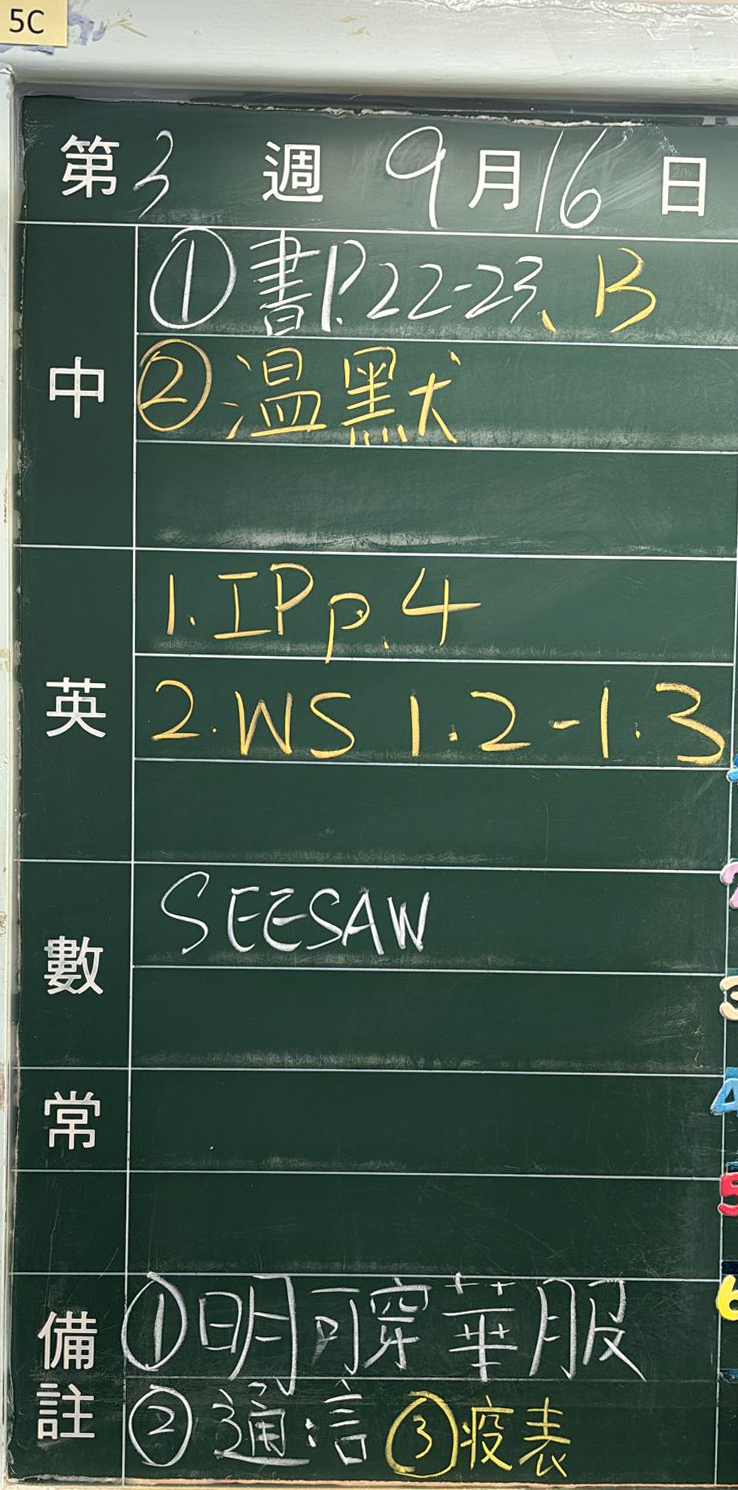 5C
第3週 9月16日
中
①書P.22-23、B
②温默犬
英
1.IP p.4
2.WS 1.2-1.3
數
SEESAW
常
備註
①明可穿華服
②通信 ③疫表
3
4
5
6